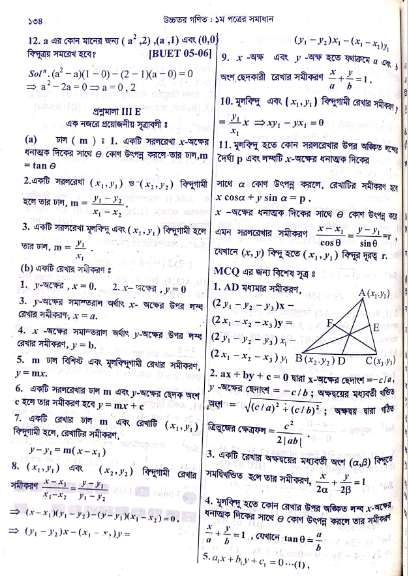 ১৩৪
উচ্চতর গণিত : ১ম পত্রের সমাধান
12. a এর কোন মানের জন্য ( a² ,2) ,(a ,1) এবং (0,0)
বিন্দুত্রয় সমরেখ হবে?    [BUET 05-06]
Solⁿ. (a² – a)(1 – 0) – (2 – 1)(a – 0) = 0
⇒ a² – 2a = 0 ⇒ a = 0 , 2
প্রশ্নমালা III E
এক নজরে প্রয়োজনীয় সূত্রাবলী ঃ
(a) ঢাল ( m ) ঃ 1. একটি সরলরেখা x-অক্ষের
ধনাত্মক দিকের সাথে θ কোণ উৎপন্ন করলে তার ঢাল,m
= tan θ
2.একটি সরলরেখা (x₁, y₁) ও (x₂, y₂) বিন্দুগামী
হলে তার ঢাল, m = (y₁ – y₂)/(x₁ – x₂) .
3. একটি সরলরেখা মূলবিন্দু এবং (x₁, y₁) বিন্দুগামী হলে
তার ঢাল, m = y₁/x₁ .
(b) একটি রেখার সমীকরণ ঃ
1. y-অক্ষের , x = 0.    2. x– অক্ষের , y = 0
3. y-অক্ষের সমান্তরাল অর্থাৎ x- অক্ষের উপর লম্ব
রেখার সমীকরণ, x = a.
4. x -অক্ষের সমান্তরাল অর্থাৎ y-অক্ষের উপর লম্ব
রেখার সমীকরণ, y = b.
5. m ঢাল বিশিষ্ট এবং মূলবিন্দুগামী রেখার সমীকরণ,
y = mx.
6. একটি সরলরেখার ঢাল m এবং y-অক্ষের ছেদক অংশ
c হলে তার সমীকরণ হবে y = mx + c
7. একটি রেখার ঢাল m এবং রেখাটি (x₁, y₁)
বিন্দুগামী হলে, রেখাটির সমীকরণ,
y – y₁ = m(x – x₁)
8. (x₁, y₁) এবং (x₂, y₂) বিন্দুগামী রেখার
সমীকরণ (x – x₁)/(x₁ – x₂) = (y – y₁)/(y₁ – y₂)
⇒ (x – x₁)(y₁ – y₂) – (y – y₁)(x₁ – x₂) = 0 ,
⇒ (y₁ – y₂)x – (x₁ – x₂)y =
(y₁ – y₂)x₁ – (x₁ – x₂)y₁
9. x -অক্ষ এবং y -অক্ষ হতে যথাক্রমে a এবং b
অংশ ছেদকারী রেখার সমীকরণ x/a + y/b = 1 .
10. মূলবিন্দু এবং (x₁, y₁) বিন্দুগামী রেখার সমীকরণ y
= y₁/x₁ x ⇒ xy₁ – yx₁ = 0
11. মূলবিন্দু হতে কোন সরলরেখার উপর অঙ্কিত লম্বের
দৈর্ঘ্য p এবং লম্বটি x-অক্ষের ধনাত্মক দিকের
সাথে α কোণ উৎপন্ন করলে, রেখাটির সমীকরণ হবে
x cosα + y sin α = p .
x -অক্ষের ধনাত্মক দিকের সাথে θ কোণ উৎপন্ন করে
এমন সরলরেখার সমীকরণ (x – x₁)/cos θ = (y – y₁)/sin θ = r,
যেখানে (x, y) বিন্দু হতে (x₁, y₁) বিন্দুর দূরত্ব r.
MCQ এর জন্য বিশেষ সূত্র ঃ
1. AD মধ্যমার সমীকরণ,
(2y₁ – y₂ – y₃)x –
(2x₁ – x₂ – x₃)y =
(2y₁ – y₂ – y₃)x₁ –
(2x₁ – x₂ – x₃)y₁
A(x₁,y₁)
F
E
B(x₂,y₂) D C(x₃,y₃)
2. ax + by + c = 0 দ্বারা x-অক্ষের ছেদাংশ = –c/a,
y -অক্ষের ছেদাংশ = –c/b ; অক্ষদ্বয়ের মধ্যবর্তী খণ্ডিত
অংশ = √((c/a)² + (c/b)²) ; অক্ষদ্বয় দ্বারা গঠিত
ত্রিভুজের ক্ষেত্রফল = c²/(2|ab|) .
3. একটি রেখার অক্ষদ্বয়ের মধ্যবর্তী অংশ (α,β) বিন্দুতে
সমদ্বিখণ্ডিত হলে তার সমীকরণ, x/2α + y/2β = 1
4. মূলবিন্দু হতে কোন রেখার উপর অঙ্কিত লম্ব x-অক্ষের
ধনাত্মক দিকের সাথে θ কোণ উৎপন্ন করলে তার সমীকরণ
x/a + y/b = 1 , যেখানে tan θ = a/b
5. a₁x + b₁y + c₁ = 0 ···(1) ,